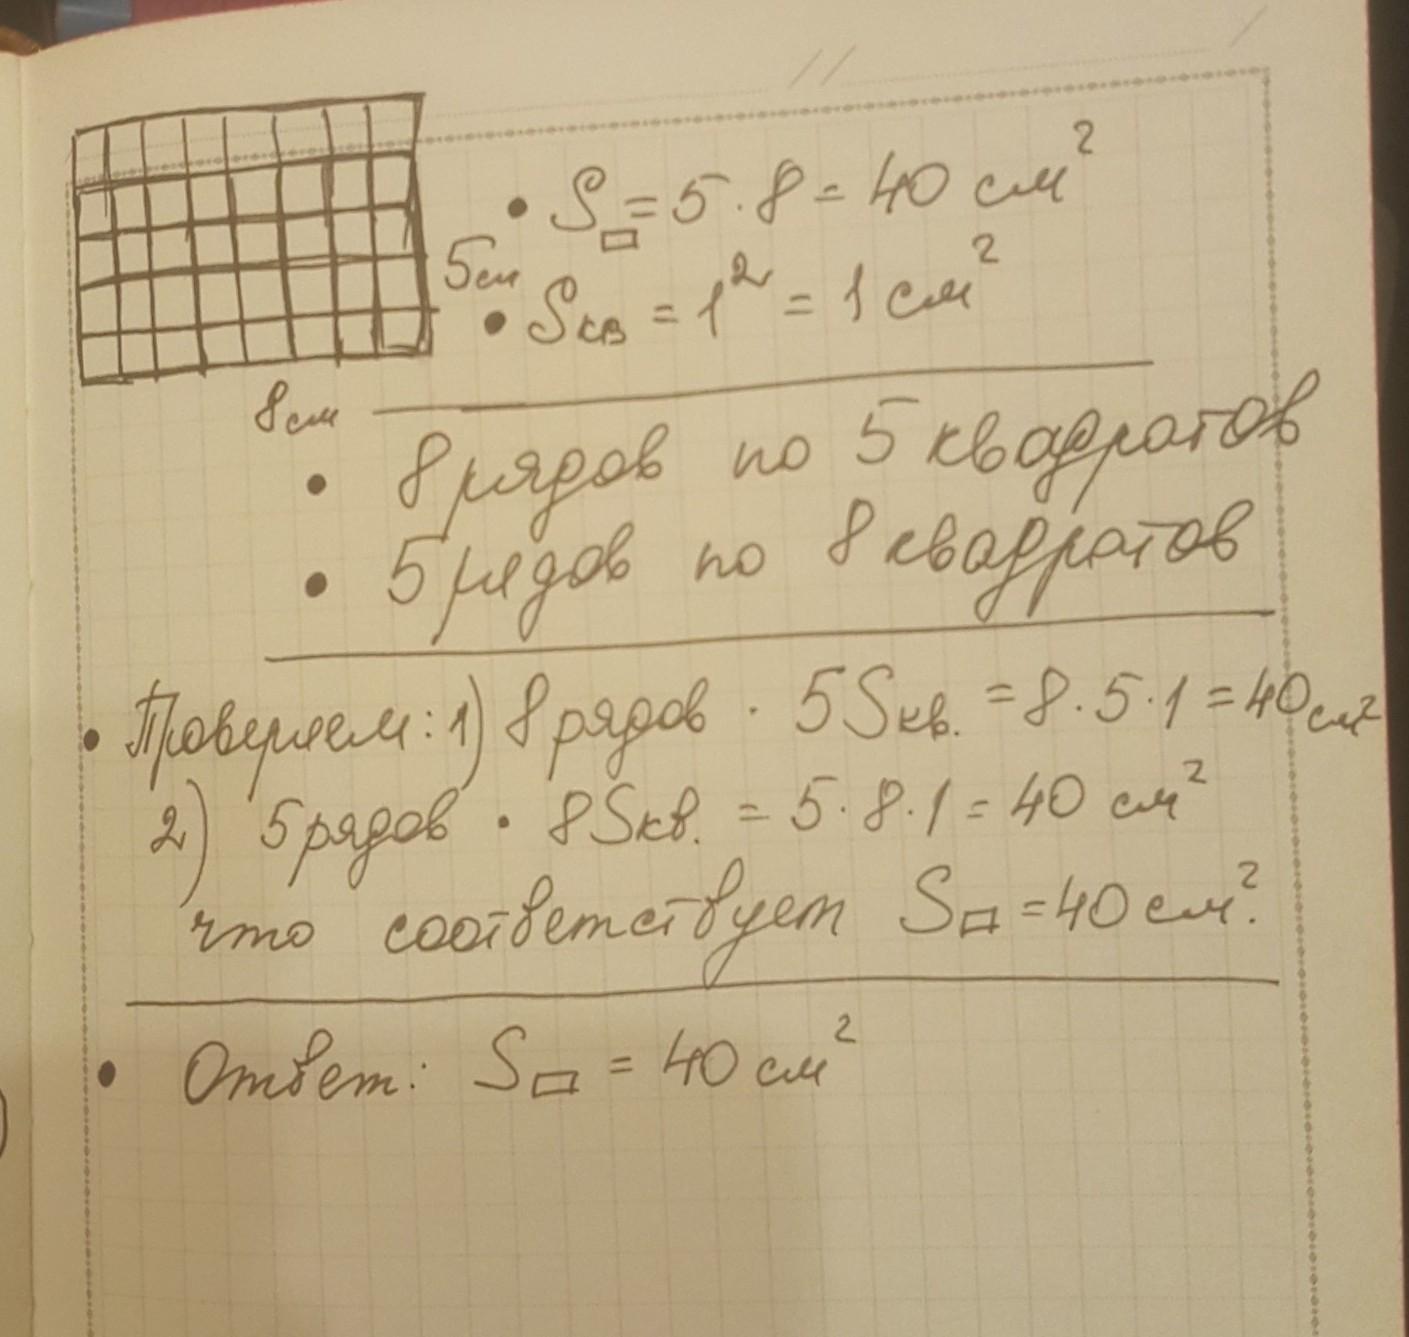 • S▭ = 5 · 8 = 40 см²
5см
• Sкв = 1² = 1 см²
8см
• 8 рядов по 5 квадратов
• 5 рядов по 8 квадратов
• Проверяем: 1) 8 рядов · 5Sкв. = 8 · 5 · 1 = 40 см²
2) 5 рядов · 8Sкв. = 5 · 8 · 1 = 40 см²
что соответствует S▭ = 40 см².
• Ответ: S▭ = 40 см²